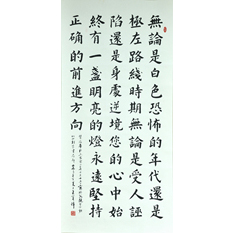 無論是白色恐怖的年代還是
極左路綫時期無論是受人誣
陷還是身處逆境您的心中始
終有一盞明亮的燈永遠堅持
正确的前進方向